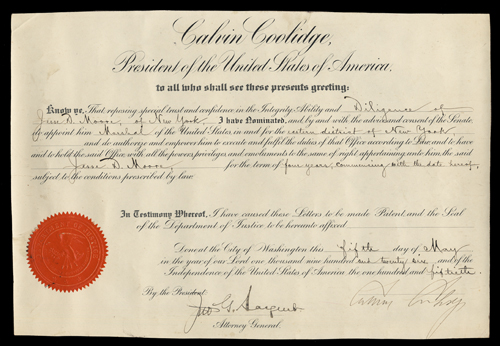 Calvin Coolidge,
President of the United States of America.
to all who shall see these presents greeting:
Know ye, That reposing special trust and confidence in the Integrity Ability and Diligence of
Jesse D. Moore, of New York I have Nominated, and by and with the advice and consent of the Senate,
do appoint him Marshal of the United States in and for the western district of New York
and do authorize and empower him to execute and fulfil the duties of that Office according to Law, and to have
and to hold the said Office with all the powers privileges and emoluments to the same of right appertaining unto him the said
Jesse D. Moore for the term of four years, commencing with the date hereof,
subject to the conditions prescribed by law.
In Testimony Whereof, I have caused these Letters to be made Patent and the Seal
of the Department of Justice to be hereunto affixed
Done at the City of Washington this fifth day of May
in the year of our Lord one thousand nine hundred and twenty six, and of the
Independence of the United States of America the one hundred and fiftieth.
By the President:
Jno G. Sargent
Attorney General.
Calvin Coolidge